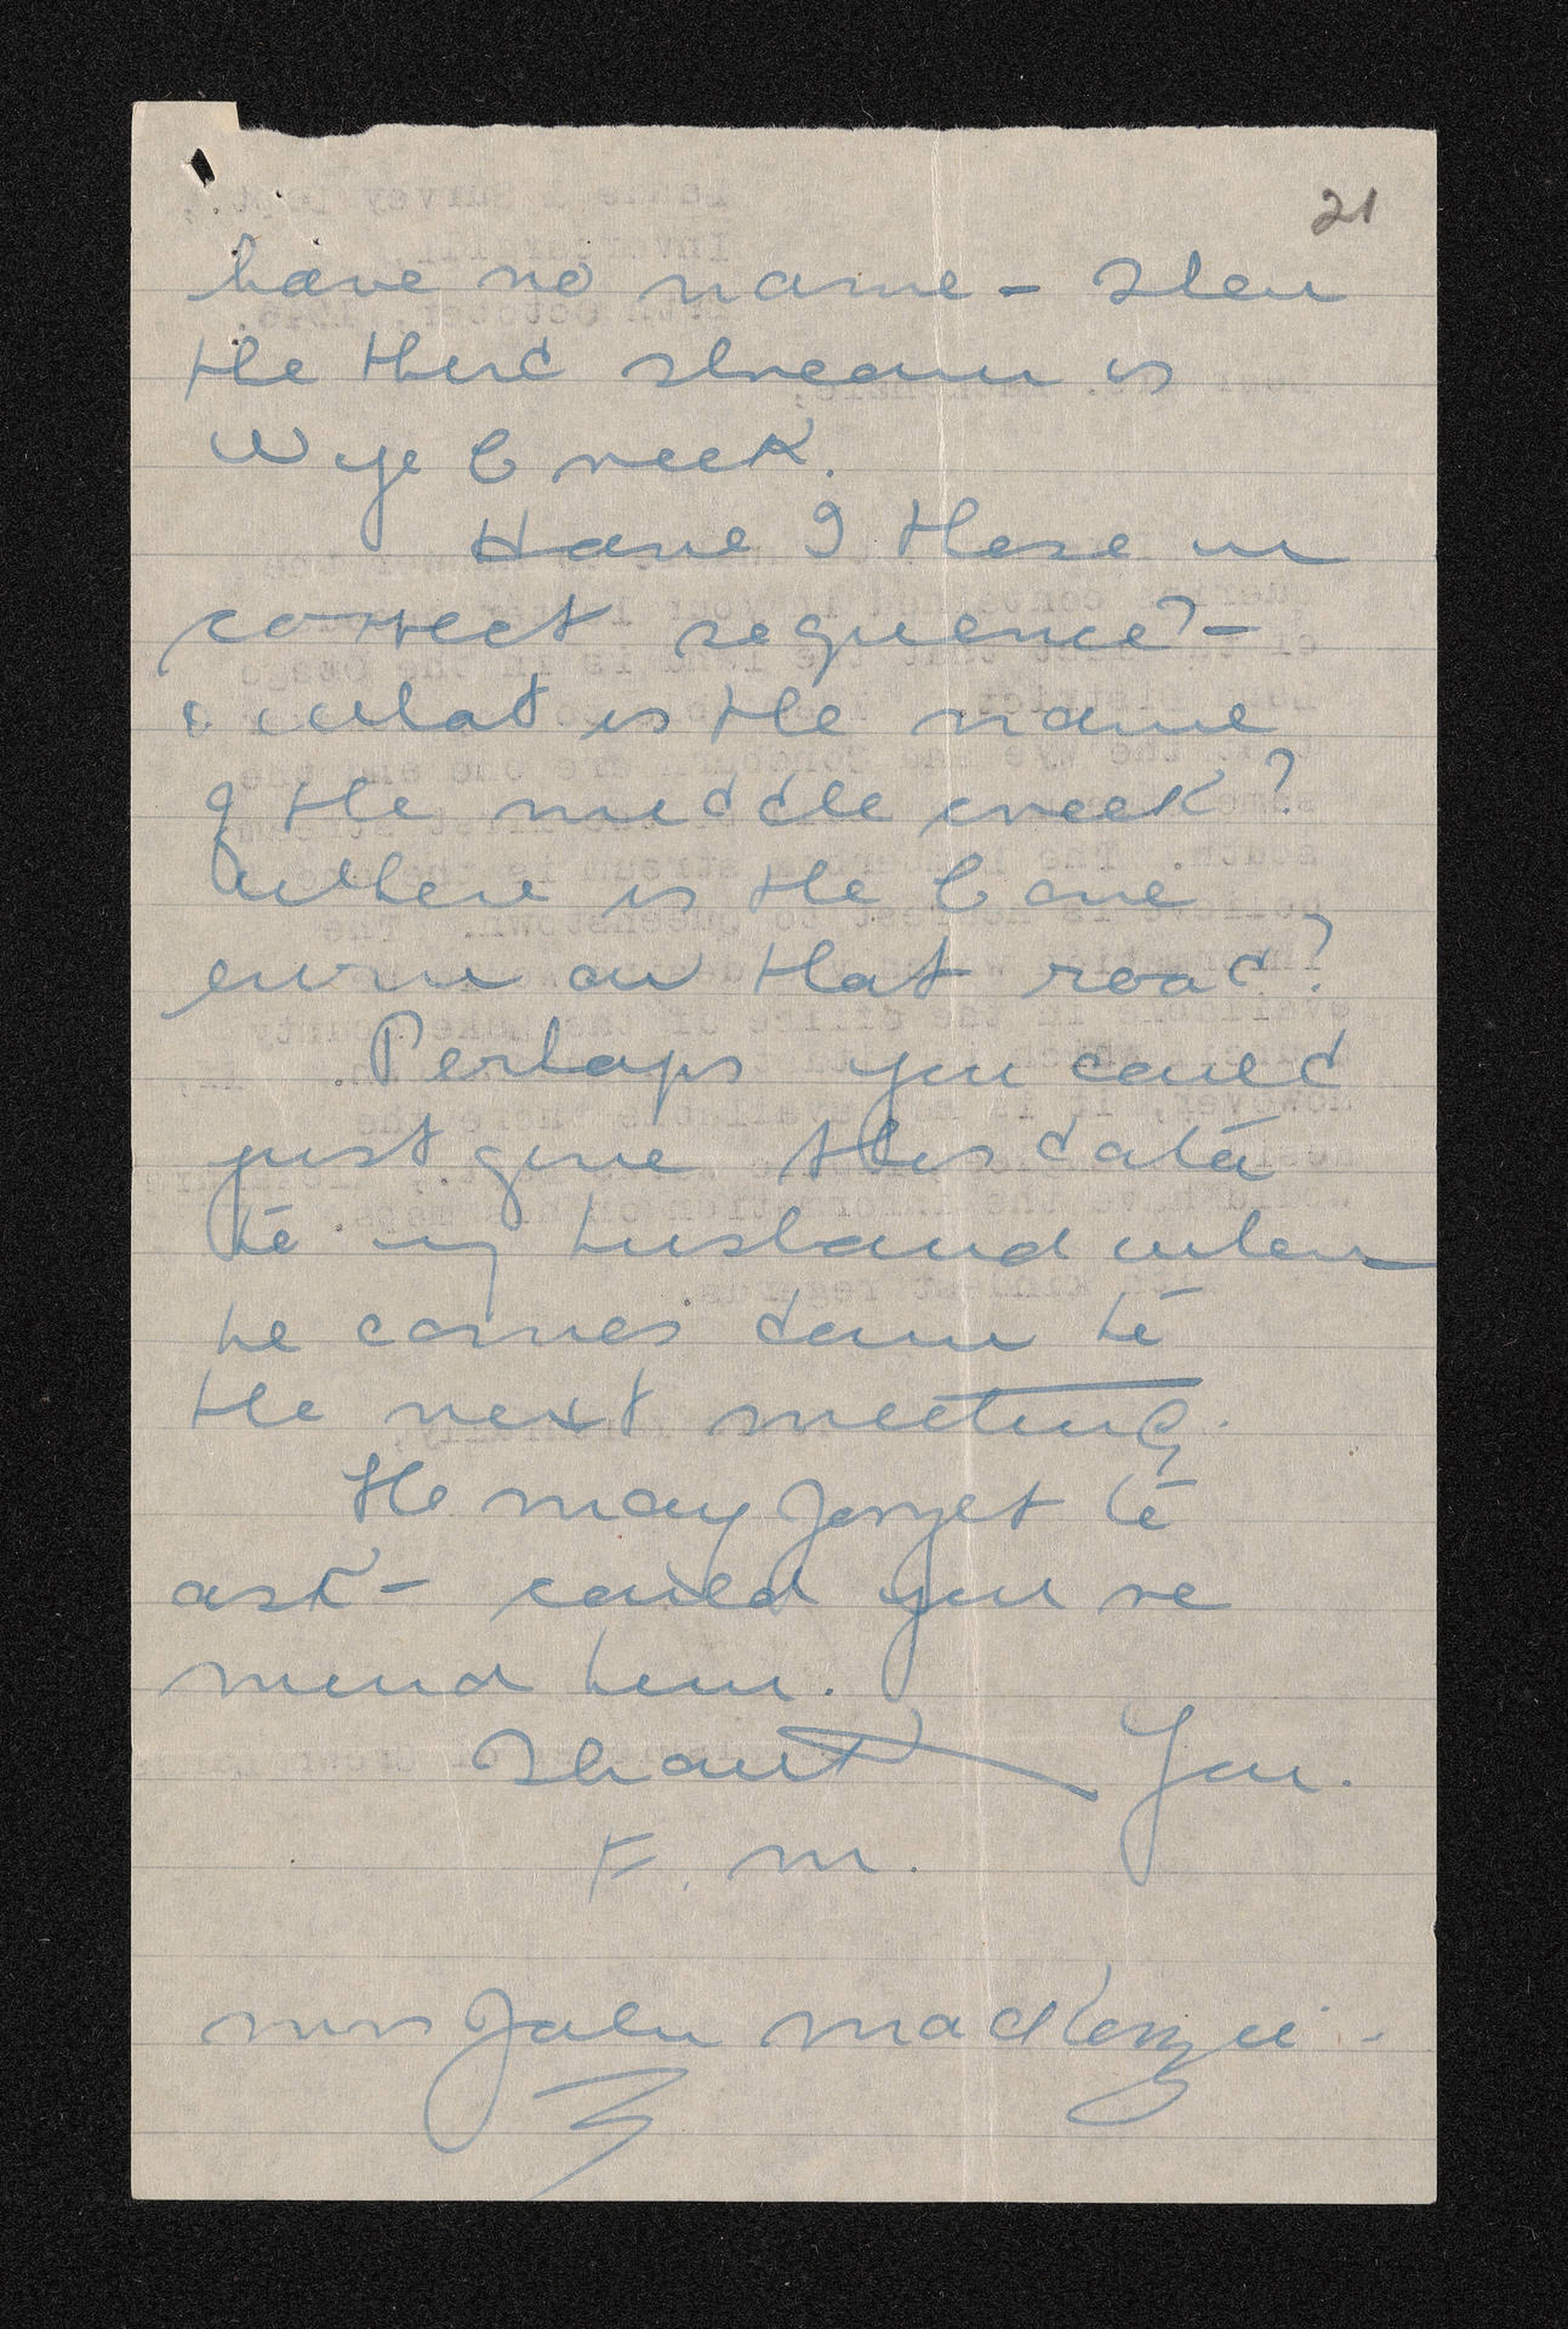 21
have no name - Then
the third stream is
Wye Creek.
Have I these in
correct sequence? -
& what is the name
of the middle creek?
Where is the Cone
on that road?
Perhaps you could
just give this data
to my husband when
he comes down to
the next meeting.
He may forget to
ask - could you re
mind him.
Thank You.
F. M.
Mrs John MacKenzie -